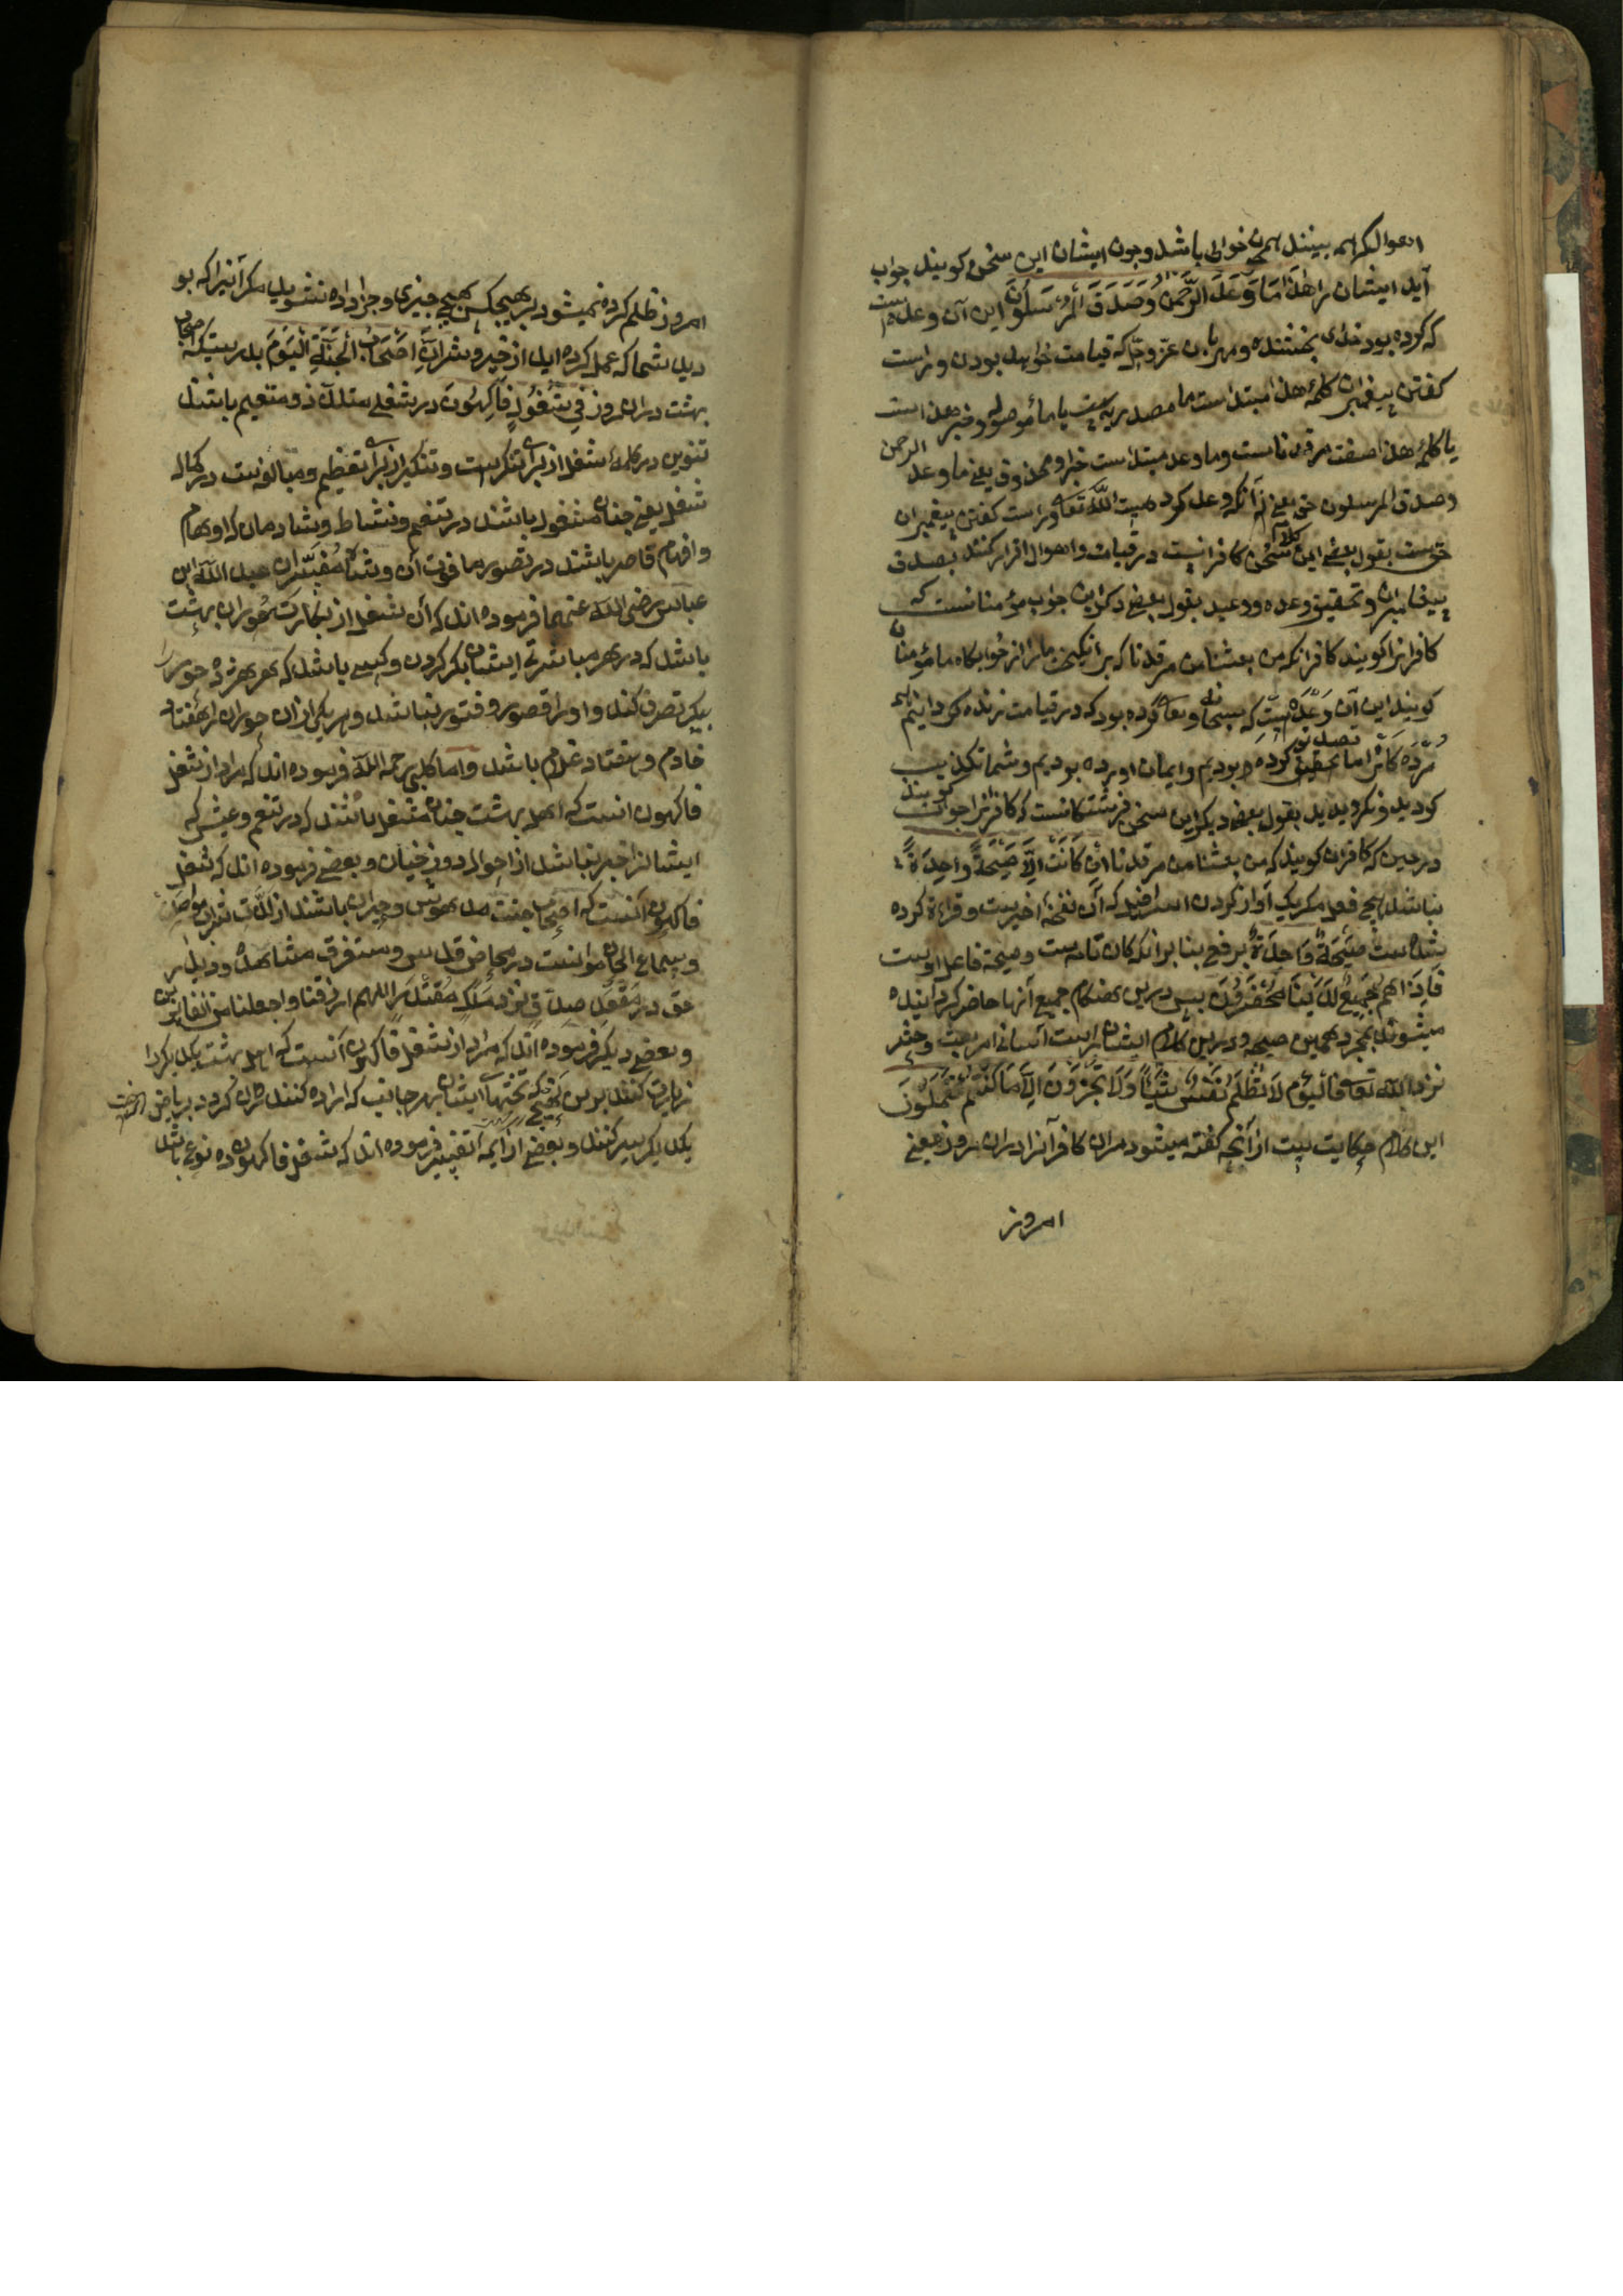 احوالکه همه بینند همچون خوابی باشد و چون ایشان این سخن کویند جواب
آید ایشان را هٰذَا مَا وَعَدَ الرَّحْمٰنُ وَصَدَقَ الْمُرْسَلُونَ این آن وعده است
که کرده بود خدای بخشنده و مهربان عز وجل که قیامت خواهد بودن و راست
کفتن پیغمبران کلمه هذا مبتداست ما مصدریه است یا ما موصوله و خبر هذا است
یا کلمه هذا صفت مرقدناست و ما وعد مبتداست خبر او محذوف یعنی ما وعد الرحمن
وصدق المرسلون حق یعنی آنکه وعد کرد هست الله تعا و راست کفتن پیغمبران
حق ست بقول بعضی این سخن کلام کافرانیست در قیامت و اهوال اقرار کنند بصدق
پیغامبران و تحقیق وعده و وعید بقول بعضی دکر این جواب مؤمنانست که
کافرانرا کویند کافرانکه من بعثنا من مرقدنا که برانکیخت ما را از خوابکاه ما مؤمنان
کویند این آن وعده است که سبحانه وتعا کرده بود که در قیامت زنده کردانیم
مرده کانرا ما تصدیق تحقیق کرده بودیم و ایمان اورده بودیم و شما تکذیب
کردید و نکرویدید بقول بعضی دیکر این سخن فرشتکانست که کافرانرا جواب کویند
در حین که کافران کویند که من بعثنا من مرقدنا اِنْ كَانَتْ اِلَّا صَيْحَةً وَاحِدَةً
نباشد هیچ فعل مکر یک آواز کردن اسرافیل که آن نفخه اخیرست و قراءة کرده
شده است صَيْحَةٌ وَاحِدَةٌ برفع بنا بر انکه کان تامه ست و صیحة فاعل اوست
فَاِذَا هُمْ جَمِيعٌ لَدَيْنَا مُحْضَرُونَ پس درین هنکام جمیع آنها حاضر کردانیده
میشوند بمجرد همین صیحه و درین کلام ایشان راست آسانی امر بعث و حشر
نزد الله تعا فَالْيَوْمَ لَا تُظْلَمُ نَفْسٌ شَيْئًا وَلَا تُجْزَوْنَ اِلَّا مَا كُنْتُمْ تَعْمَلُونَ
این کلام حکایت ست از آنچه کفته میشود مران کافرانرا دران روز یعنی
امروز
امروز ظلم کرده نمیشود بر هیچکس هیچ چیزی و جزا داده نشوید مکر آنیرا که بو
دید شما که عمل کرده اید از خیر و شر اِنَّ اَصْحَابَ الْجَنَّةِ الْيَوْمَ بدرستیکه اصحاب
بهشت دران روز فِي شُغُلٍ فَاكِهُونَ در شغلی متلذذ و متنعم باشند
تنوین در کلمه شغل از برای تنکیرست و تنکیر از برای تعظیم و مبالغه ست در کمال
شغل یعنی چنان مشغول باشند در تنعم و نشاط و شادمان که اوهام
و افهام قاصر باشند در تصور ما فوق آن و مفسران عبد الله ابن
عباس رضی الله عنهما فرموده اند که آن شغل از بکارت حوران بهشت
باشد که در هر مباشرتی ایشان بکر کردن و کسی باشد که هر هژده حور را
بیکر تصرف کند و او را قصور و فتور نباشد و هر یکی ازان حوران را هفتاد
خادم و هفتاد غلام باشند و اما کلبی رحمه الله فرموده اند که مراد از شغل
فاکهون انست که اهل بهشت چنان مشغل باشند که در تنعم و عیش که
ایشانرا خبر نباشد از احوال دوزخیان و بعضی فرموده اند که شغل
فاکهون آنست که اصحاب جنت مدهوش و حیران باشند از لذت شراب
و سماع الحان موانست در محاضر قدس و مستغرق مشاهده و دیدار
حق در مَقْعَدِ صِدْقٍ نزد مَلِيكٍ مُقْتَدِرٍ اللهم ارزقنا واجعلنا من الفایزین
و بعضی دیکر فرموده اند که مراد از شغل فاکهون آنست که اهل بهشت یکدیکر را
زیارت کنند برین تختهاء ایشان بهر جانب که اراده کنند روان کردد بریاض
یکدیکر سیر کنند و بعضی از ایمه تفسیر فرموده اند که شغل فاکهون ده نوع باشد